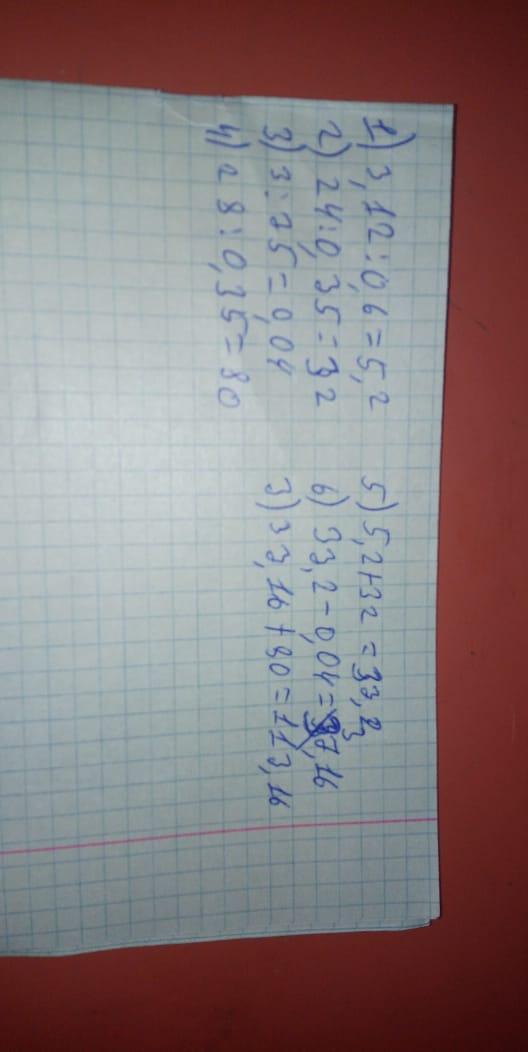 1) 3,12:0,6=5,2
2) 24:0,35=32
3) 3:75=0,04
4) 28:0,35=80
5) 5,2+32=33,2
6) 33,2-0,04=33,16
3) 33,16+80=113,16